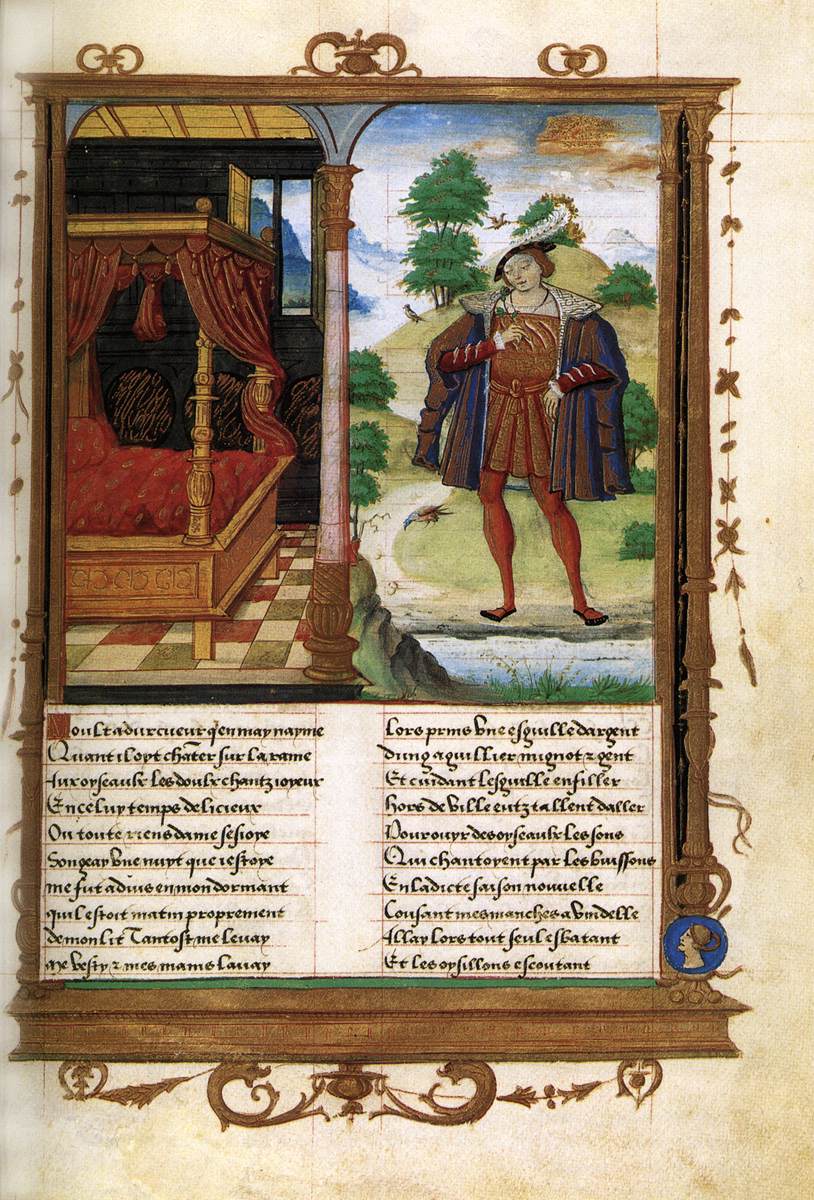 Moult a dur cueur qen may nayme
Quant il oyt chãter sur la rame
Aux oyseaulx les doulx chantz ioyeux
En celuy temps delicieux
Ou toute riens damer sesioye
Songeay vne nuyt que iestoye
me fut aduis en mon dormant
quil estoit matin proprement
de mon lit Tantost me leuay
Me vesty ⁊ mes mains lauay
Lors prins vne esguille dargent
dung aguillier mignot ⁊ gent
Et cuidant lesguille enfiller
hors de ville euz tallent daller
Pour ouyr des oyseaulx les sons
Qui chantoyent par les buissons
En ladicte saison nouuelle
Cousant mes manches a videlle
Allay lors tout seul esbatant
Et les oysillons escoutant